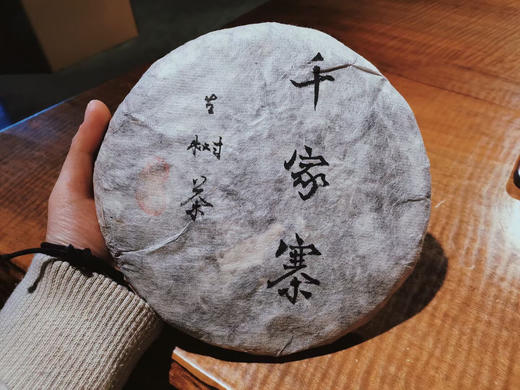 千家寨
古树茶